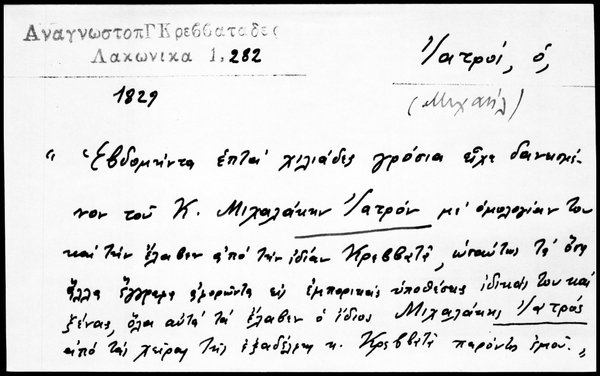 ΑναγνωστοπΓΚρεββαταδες
Λακωνικα 1,282
Ἰατροί, ὁ,
1829
(Μιχαήλ)
"Ἑβδομήντα ἑπτά χιλιάδες γρόσια εἶχε δανεισμέ-
νον τοῦ Κ. Μιχαλάκην Ἰατρόν μέ ὁμολογίαν του
καί τήν ἔλαβεν ἀπό τήν ἰδίαν Κρεββατᾶ, ὡσαύτως τά ὅσα
ἄλλα ἔγγραφα ἀφορῶντα εἰς ἐμπορικάς ὑποθέσεις ἰδικάς του καί
ξένας, ὅλα αὐτά τά ἔλαβεν ὁ ἴδιος Μιχαλάκης Ἰατρός
ἀπό τάς χεῖρας τῆς ἐξαδέλφης κ. Κρεββατᾶ παρόντος ἐμοῦ."